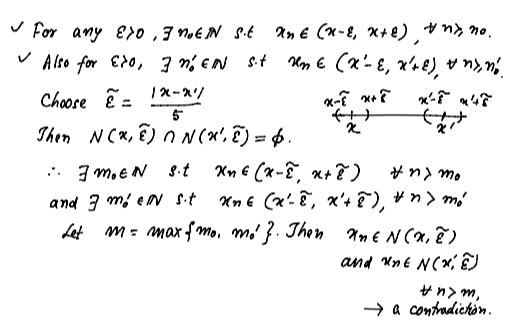 ✓ For any ε>0, ∃ n₀∈ℕ s.t xₙ ∈ (x-ε, x+ε), ∀ n≥n₀.
✓ Also for ε>0, ∃ n₀'∈ℕ s.t xₙ ∈ (x'-ε, x'+ε), ∀ n≥n₀'.
Choose ε̃ = |x-x'|/5
x-ε̃ x+ε̃ x'-ε̃ x'+ε̃
x x'
Then N(x, ε̃) ∩ N(x', ε̃) = ϕ.
∴ ∃ m₀∈ℕ s.t xₙ∈(x-ε̃, x+ε̃) ∀ n> m₀
and ∃ m₀'∈ℕ s.t xₙ∈ (x'-ε̃, x'+ε̃), ∀ n> m₀'
Let m = max{m₀, m₀'}. Then xₙ∈ N(x, ε̃)
and xₙ∈ N(x', ε̃)
∀ n>m,
→ a contradiction.